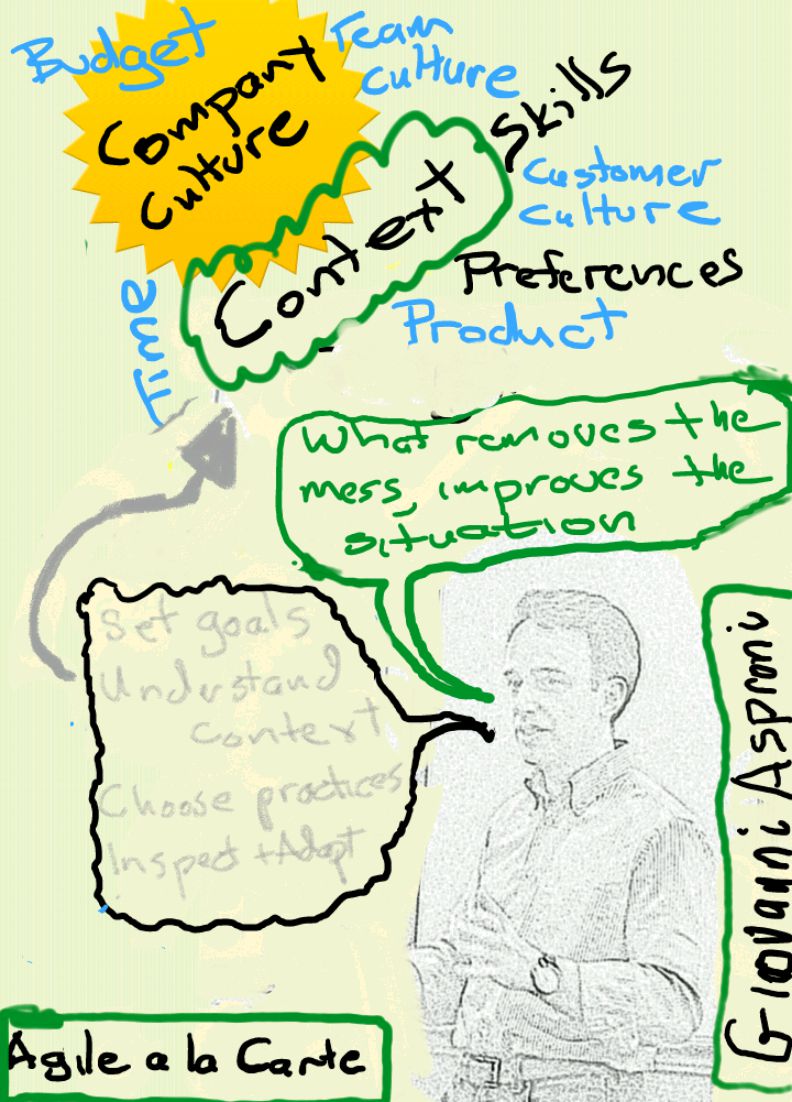 Budget
Team
culture
Company
culture
Skills
Context
Customer
culture
Preferences
Product
Time
What removes the
mess, improves the
situation
Set goals
Understand
context
Choose practices
Inspect + Adapt
Giovanni Asproni
Agile a la Carte